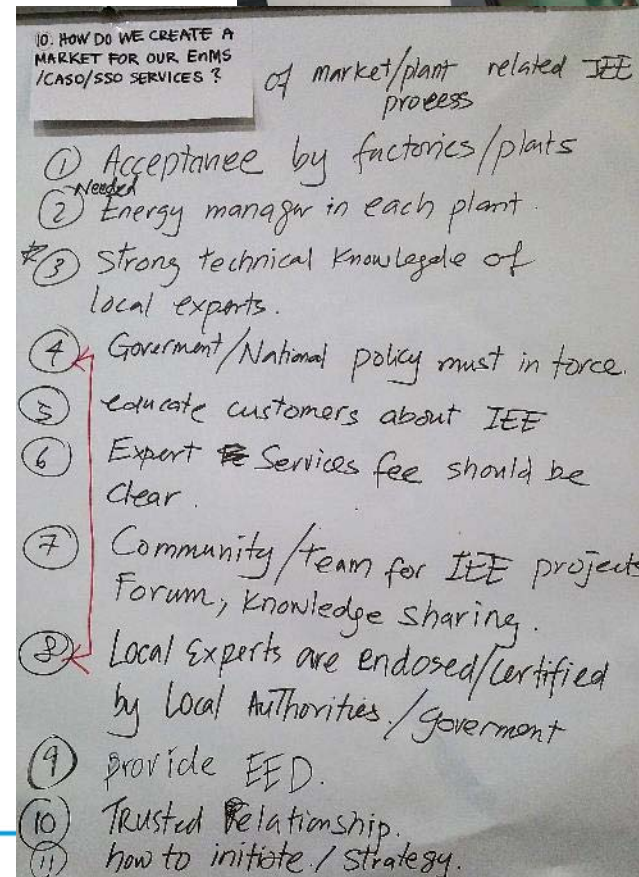 10. HOW DO WE CREATE A
MARKET FOR OUR EnMS
/CASO/SSO SERVICES ?
of market/plant related IEE
process
① Acceptance by factories/plants
Needed
② Energy manager in each plant.
③ Strong technical Knowlegde of
local experts.
④ Goverment/National policy must in force.
⑤ educate customers about IEE
⑥ Expert Services fee should be
clear.
⑦ Community/team for IEE projects
Forum, knowledge sharing.
⑧ Local Experts are endosed/certified
by Local Authorities./goverment
⑨ provide EED.
⑩ Trusted Relationship.
⑪ how to initiate./strategy.